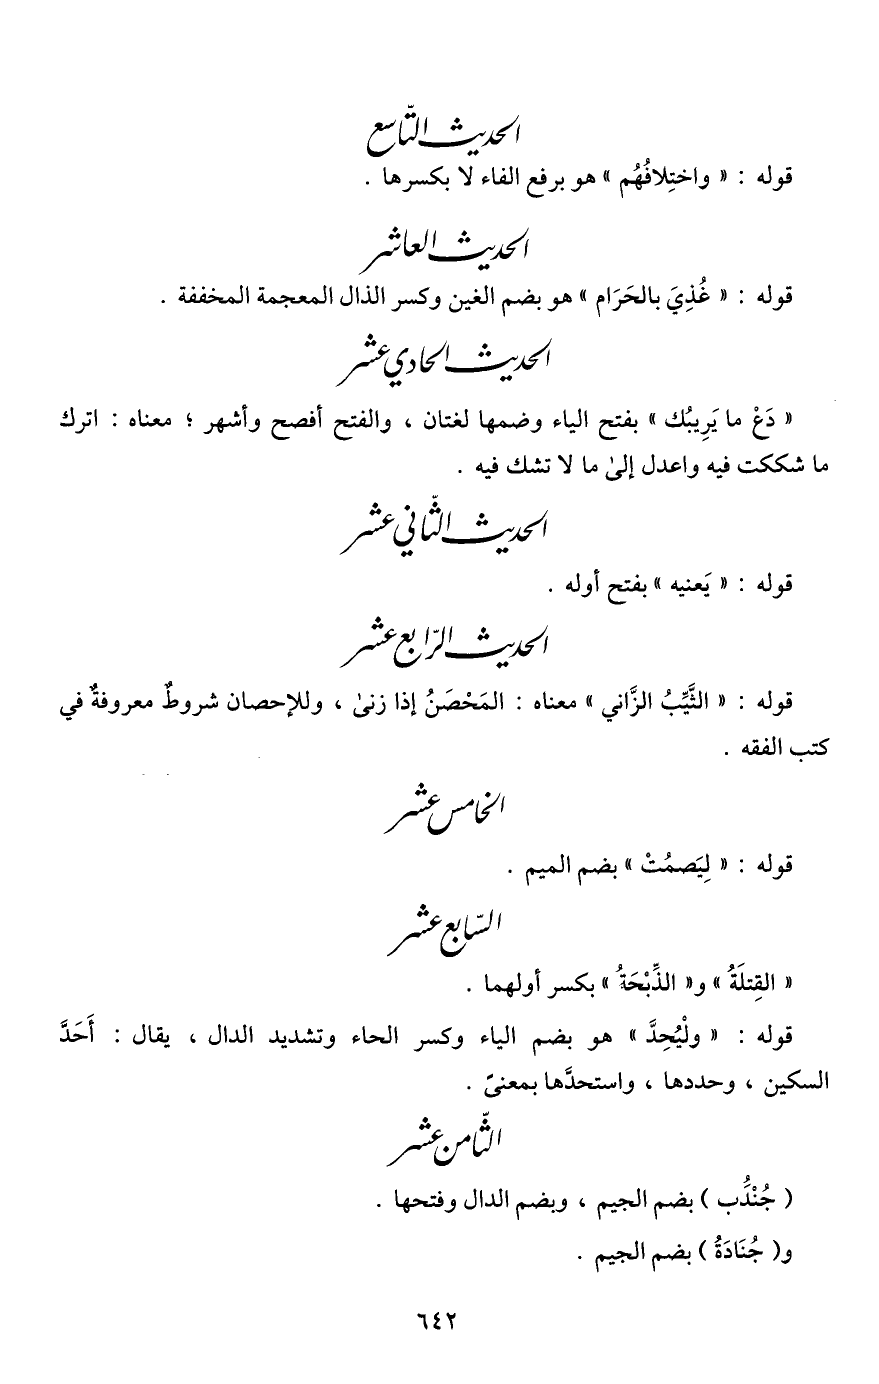 الحديث التّاسع
قوله : « واختِلافُهُم » هو برفع الفاء لا بكسرها .
الحديث العاشر
قوله : « غُذِيَ بالحَرَام » هو بضم الغين وكسر الذال المعجمة المخففة .
الحديث الحادي عشر
« دَعْ ما يَرِيبُك » بفتح الياء وضمها لغتان ، والفتح أفصح وأشهر ؛ معناه : اترك
ما شككت فيه واعدل إلىٰ ما لا تشك فيه .
الحديث الثّاني عشر
قوله : « يَعنيه » بفتح أوله .
الحديث الرّابع عشر
قوله : « الثَّيِّبُ الزَّاني » معناه : المَحْصَنُ إذا زنىٰ ، وللإحصان شروطٌ معروفةٌ في
كتب الفقه .
الخامس عشر
قوله : « لِيَصمُتْ » بضم الميم .
السّابع عشر
« القِتلَةُ » و« الذِّبْحَةُ » بكسر أولهما .
قوله : « ولْيُحِدَّ » هو بضم الياء وكسر الحاء وتشديد الدال ، يقال : أَحَدَّ
السكين ، وحددها ، واستحدَّها بمعنىً .
الثّامن عشر
( جُنْدَُب ) بضم الجيم ، وبضم الدال وفتحها .
و( جُنَادَةُ ) بضم الجيم .
٦٤٢